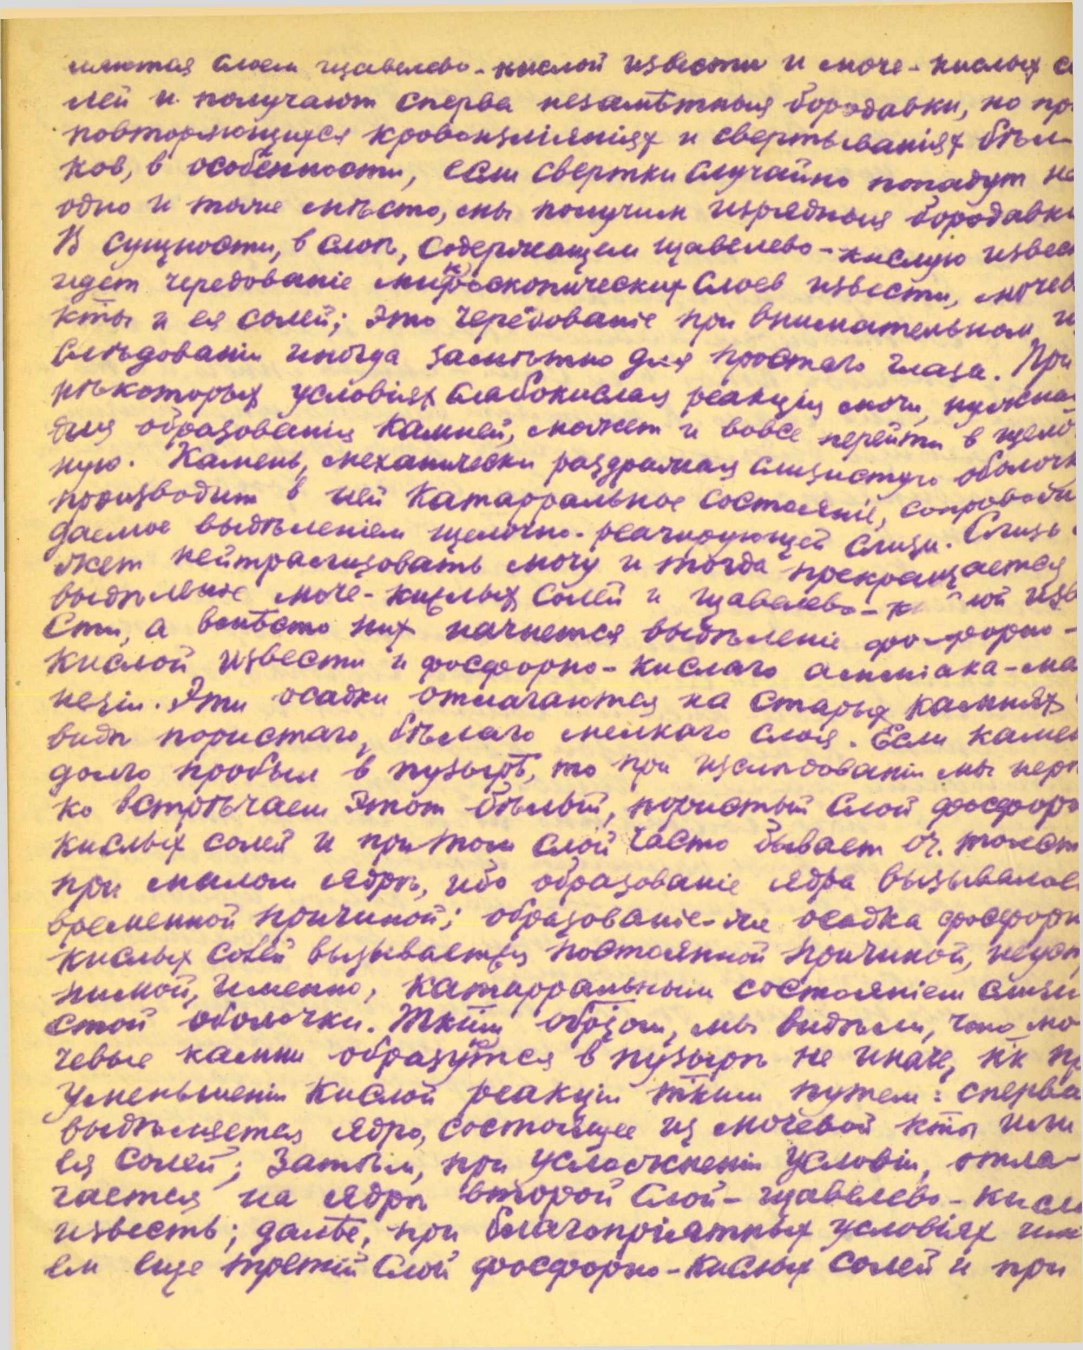 мяются слоем щавелево-кислой извести и моче-кислых со
лей и получают сперва незамѣтныя бородавки, но пр
повторяющихся кровоизліяніях и свертываніях бѣл-
ков, в особенности, если свертки случайно попадут на
одно и тоже мѣсто, мы получим изрядныя бородавки
В сущности, в слоѣ, содержащем щавелево-кислую извес
идет чередованіе микроскопических слоев извести, мочев
к͞ты и ея солей; это чередованіе при внимательном и
слѣдованіи иногда замѣтно для простаго глаза. При
нѣкоторых условіях слабокислая реакція мочи, нужная
для образованія камней, может и вовсе перейти в щелоч
ную. Камень, механически раздражая слизистую оболочк
производит в ней катарральное состояніе, сопровож
даемое выдѣленіем щелочно-реагирующей слизи. Слизь
жет нейтрализовать мочу и тогда прекращается
выдѣленіе моче-кислых солей и щавелево-к лой изв
сти, а вмѣсто них начнется выдѣленіе фосфорно-
кислой извести и фосфорно-кислаго амміака-маг
незіи. Эти осадки отлагаются на старых камнях
видѣ пористаго, бѣлаго мелкаго слоя. Если камень
долго пробыл в пузырѣ, то при изслѣдованіи мы нерѣд
ко встрѣчаем этот бѣлый, пористый слой фосфорн
кислых солей и притом слой часто бывает оч. толст
при малом ядрѣ, ибо образованіе ядра вызывалос
временной причиной; образованіе-же осадка фосфорн
кислых солей вызывается постоянной причиной, неуст
нимой, именно, катарральным состояніем слизи
стой оболочки. Тким обрзом, мы видѣли, что мо-
чевые камни образуются в пузырѣ не иначе, кк пр
уменьшеніи кислой реакціи тким путем: сперва
выдѣляется ядро, состоящее из мочевой к͞ты или
ея солей; затѣм, при усложненіи условій, отла-
гается на ядрѣ второй слой - щавелево-кисл
известь; далѣе, при благопріятных условіях им
ем еще третій слой фосфорно-кислых солей и при